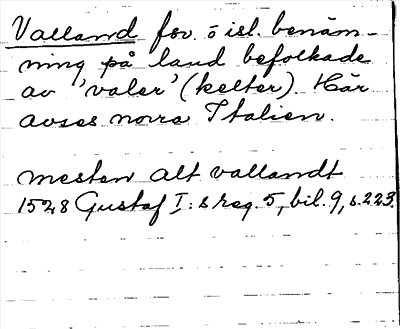 Valland fsv. o isl. benäm-
ning på land befolkade
av 'valer' (kelter). Här
avses norra Italien.
mesten alt vallandt
1528 Gustaf I:s reg. 5, bil. 9, s. 223.